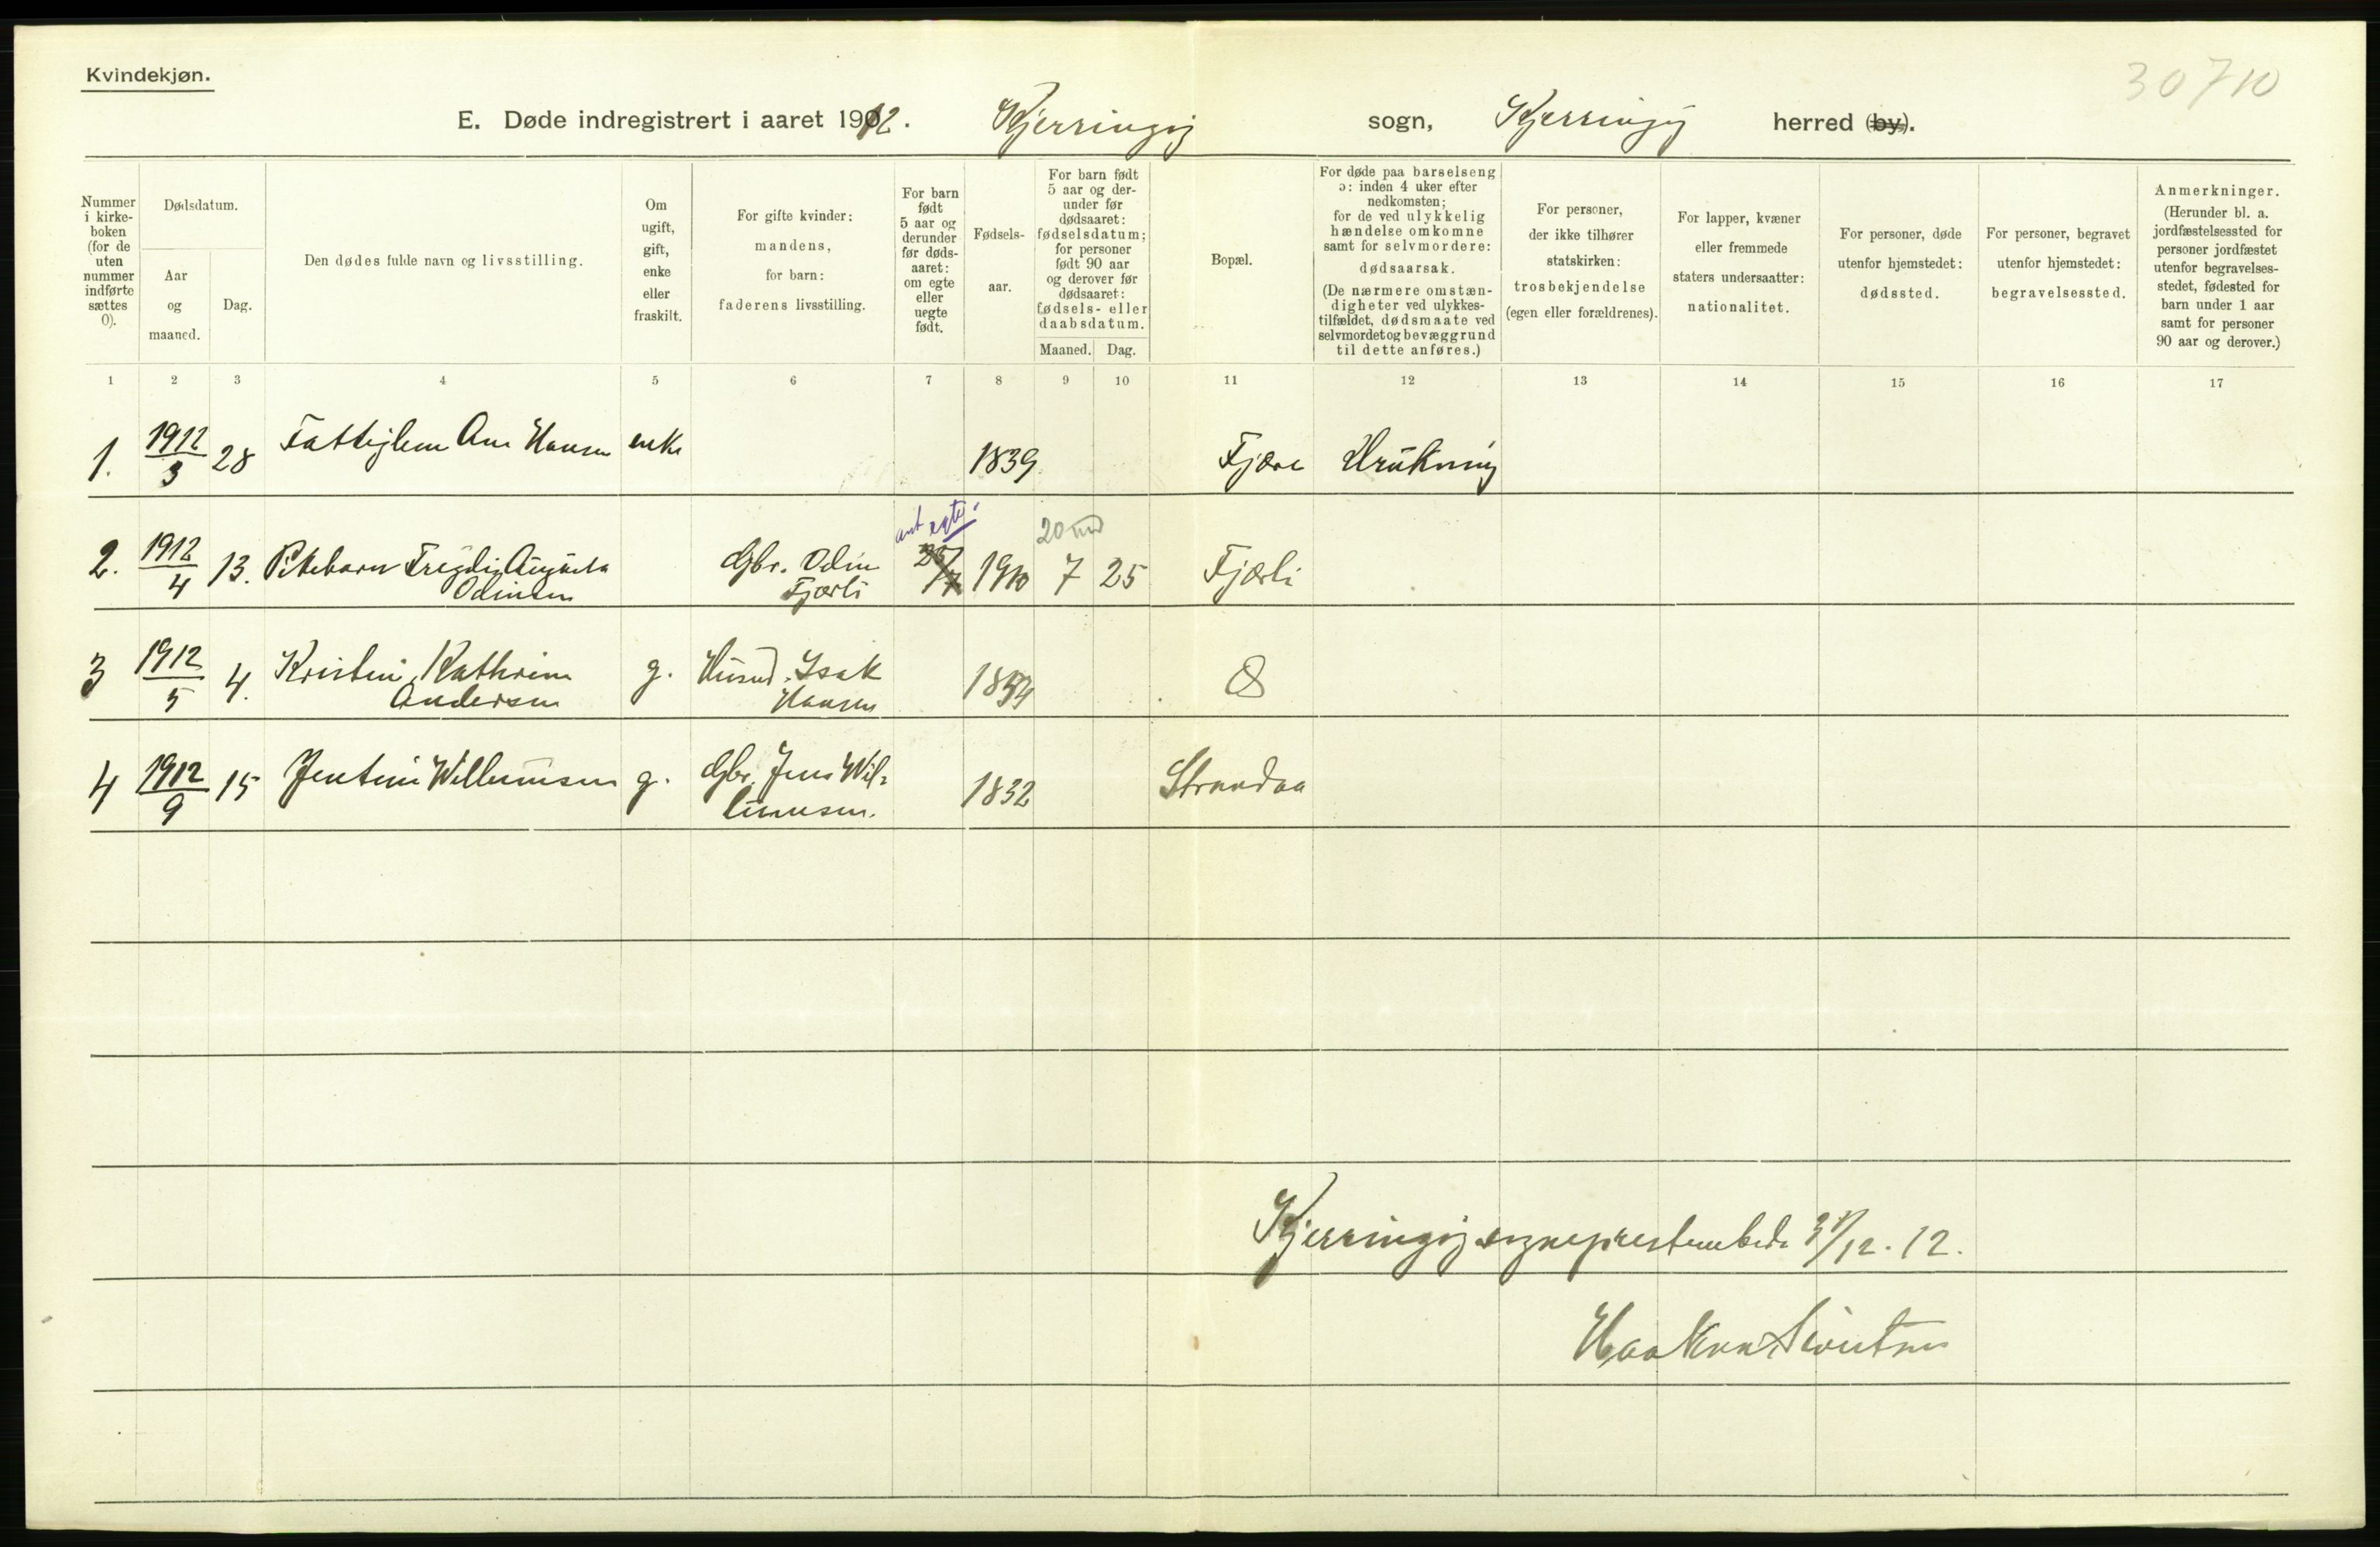 Kvindekjøn.
30710
E. Døde indregistrert i aaret 1912. Kjerringøy sogn, Kjerringøy herred (by).
Nummer i kirke-boken (for de uten nummer indførte sættes 0).
Dødsdatum.
Aar og maaned.
Dag.
Den dødes fulde navn og livsstilling.
Om ugift, gift, enke eller fraskilt.
For gifte kvinder: mandens, for barn: faderens livsstilling.
For barn født 5 aar og derunder før døds-aaret: om egte eller uegte født.
Fødsels-aar.
For barn født 5 aar og der-under før dødsaaret: fødselsdatum; for personer født 90 aar og derover før dødsaaret: fødsels- eller daabsdatum.
Maaned. Dag.
Bopæl.
For døde paa barselseng ɔ: inden 4 uker efter nedkomsten; for de ved ulykkelig hændelse omkomne samt for selvmordere: dødsaarsak. (De nærmere omstæn-digheter ved ulykkes-tilfældet, dødsmaate ved selvmordet og bevæggrund til dette anføres.)
For personer, der ikke tilhører statskirken: trosbekjendelse (egen eller forældrenes).
For lapper, kvæner eller fremmede staters undersaatter: nationalitet.
For personer, døde utenfor hjemstedet: dødssted.
For personer, begravet utenfor hjemstedet: begravelsessted.
Anmerkninger. (Herunder bl. a. jordfæstelsessted for personer jordfæstet utenfor begravelses-stedet, fødested for barn under 1 aar samt for personer 90 aar og derover.)
1 2 3 4 5 6 7 8 9 10 11 12 13 14 15 16 17
1. 1912/3 28 Fattiglem Ane Hansen enke 1839 Fjære Drukning
ant egte. 20 md
2. 1912/4 13. Pikebarn Augusta Odinsen Gbr. Odin Fjærli 25/7 1910 7 25 Fjærli
3 1912/5 4. Kristine Kathrine Andersen g. Husmd. Isak Hansen
4 1912/9 15 Jentine Willumsen g. Gbr. Jens Willumsen. 1832 Strandaa
Kjerringøy sogneprestembede 31/12. 12.
Haakon